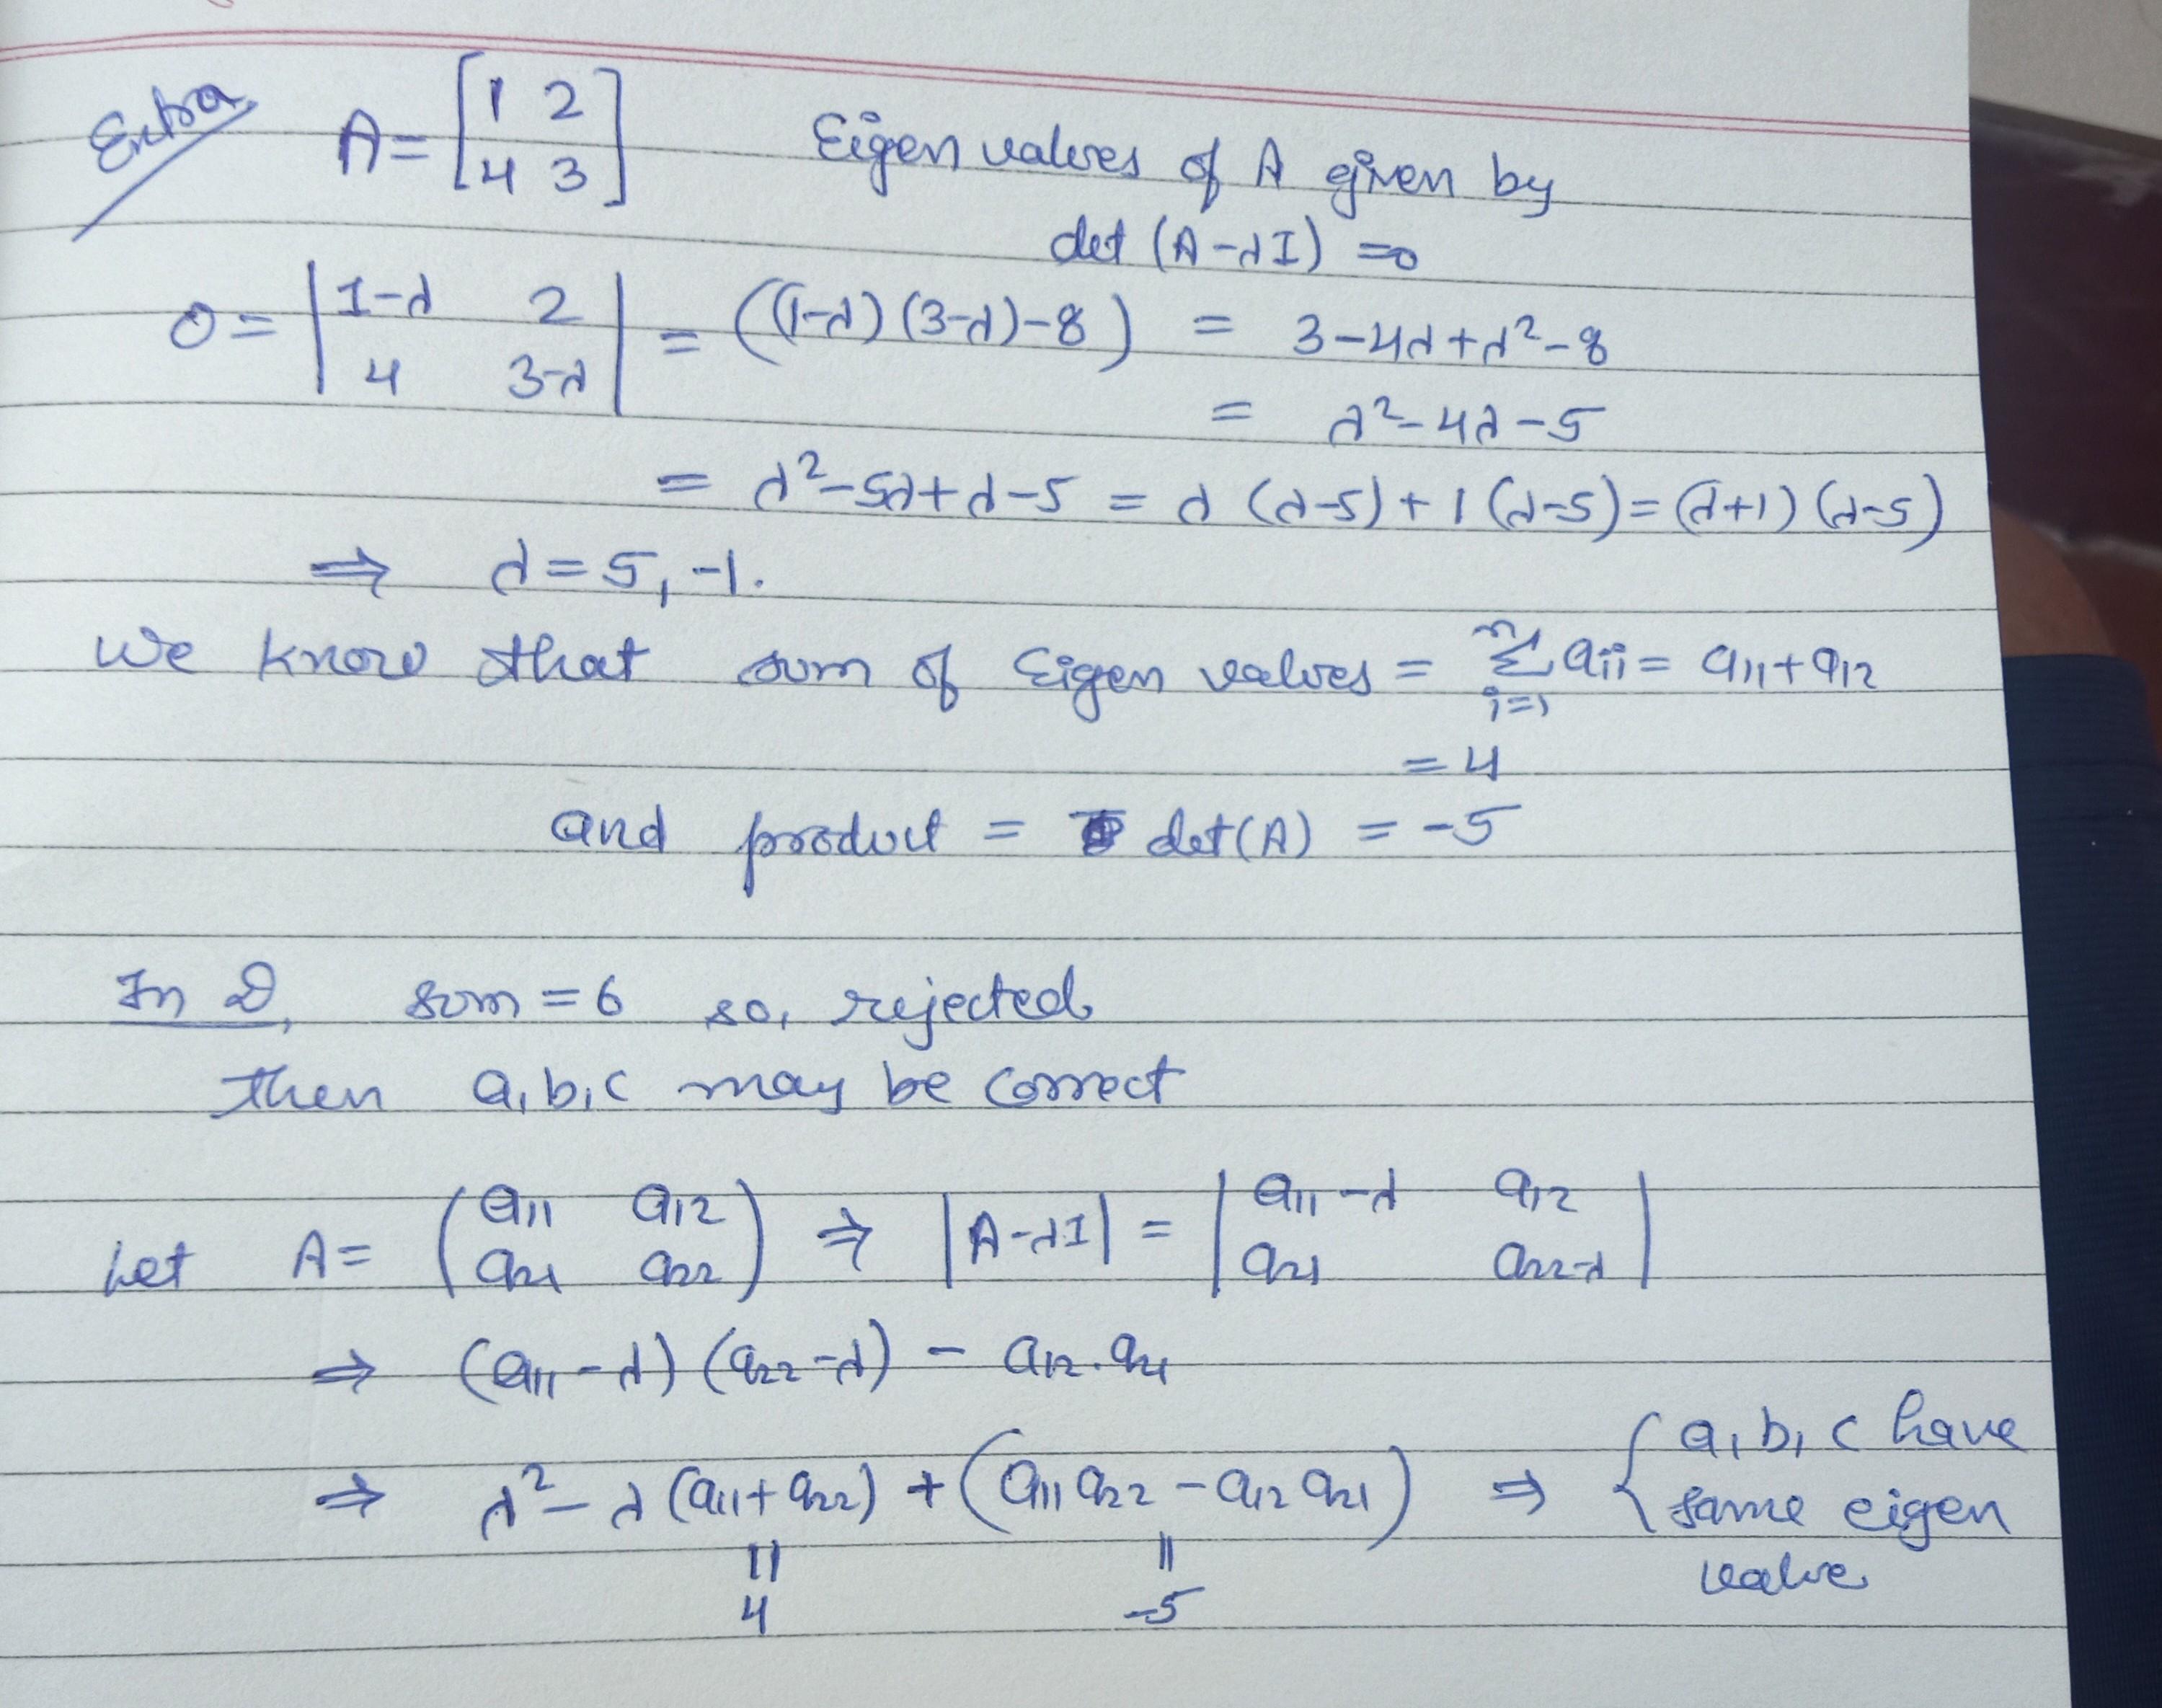 Extra A = [1 2 4 3] Eigen values of A given by
det (A-λI) =0
0 = |1-λ 2 4 3-λ| = ((1-λ) (3-λ)-8) = 3-4λ+λ²-8
= λ²-4λ-5
= λ²-5λ+λ-5 = λ (λ-5)+1(λ-5) = (λ+1) (λ-5)
⇒ λ=5, -1.
We know that sum of Eigen values = n∑i=1 aii = a11+a12
= 4
and product = det(A) = -5
In D, sum = 6 so, rejected
Then a, b, c may be correct
Let A = (a11 a12 a21 a22) ⇒ |A-λI| = |a11-λ a12 a21 a22-λ|
⇒ (a11-λ) (a22-λ) - a12.a21
⇒ λ²- λ (a11+a22) + (a11 a22 - a12 a21) ⇒ { a, b, c have
same eigen
value
|| ||
4 -5